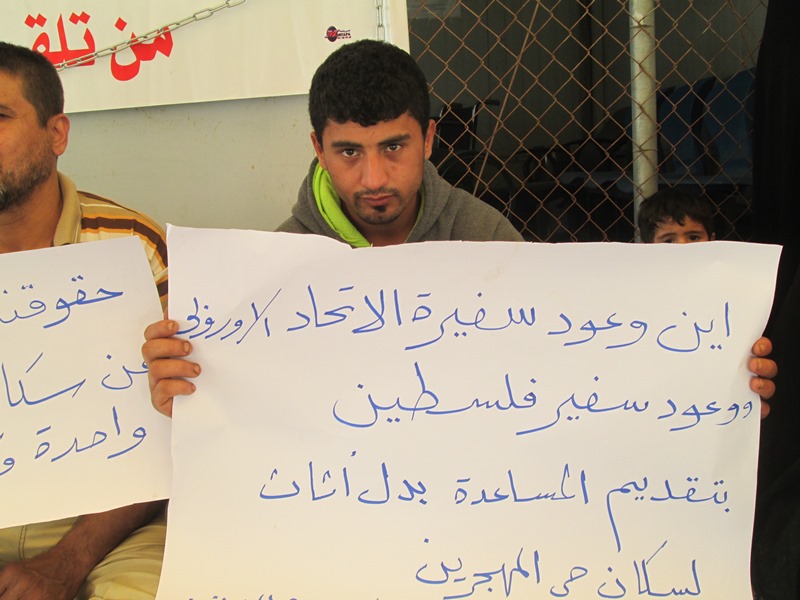 من تلق
اين وعود سفيرة الاتحاد الاوروبي
ووعود سفير فلسطين
بتقديم المساعدة بدل أثاث
لسكان حي المهجرين
حقوقنا
من سكا
واحدة و